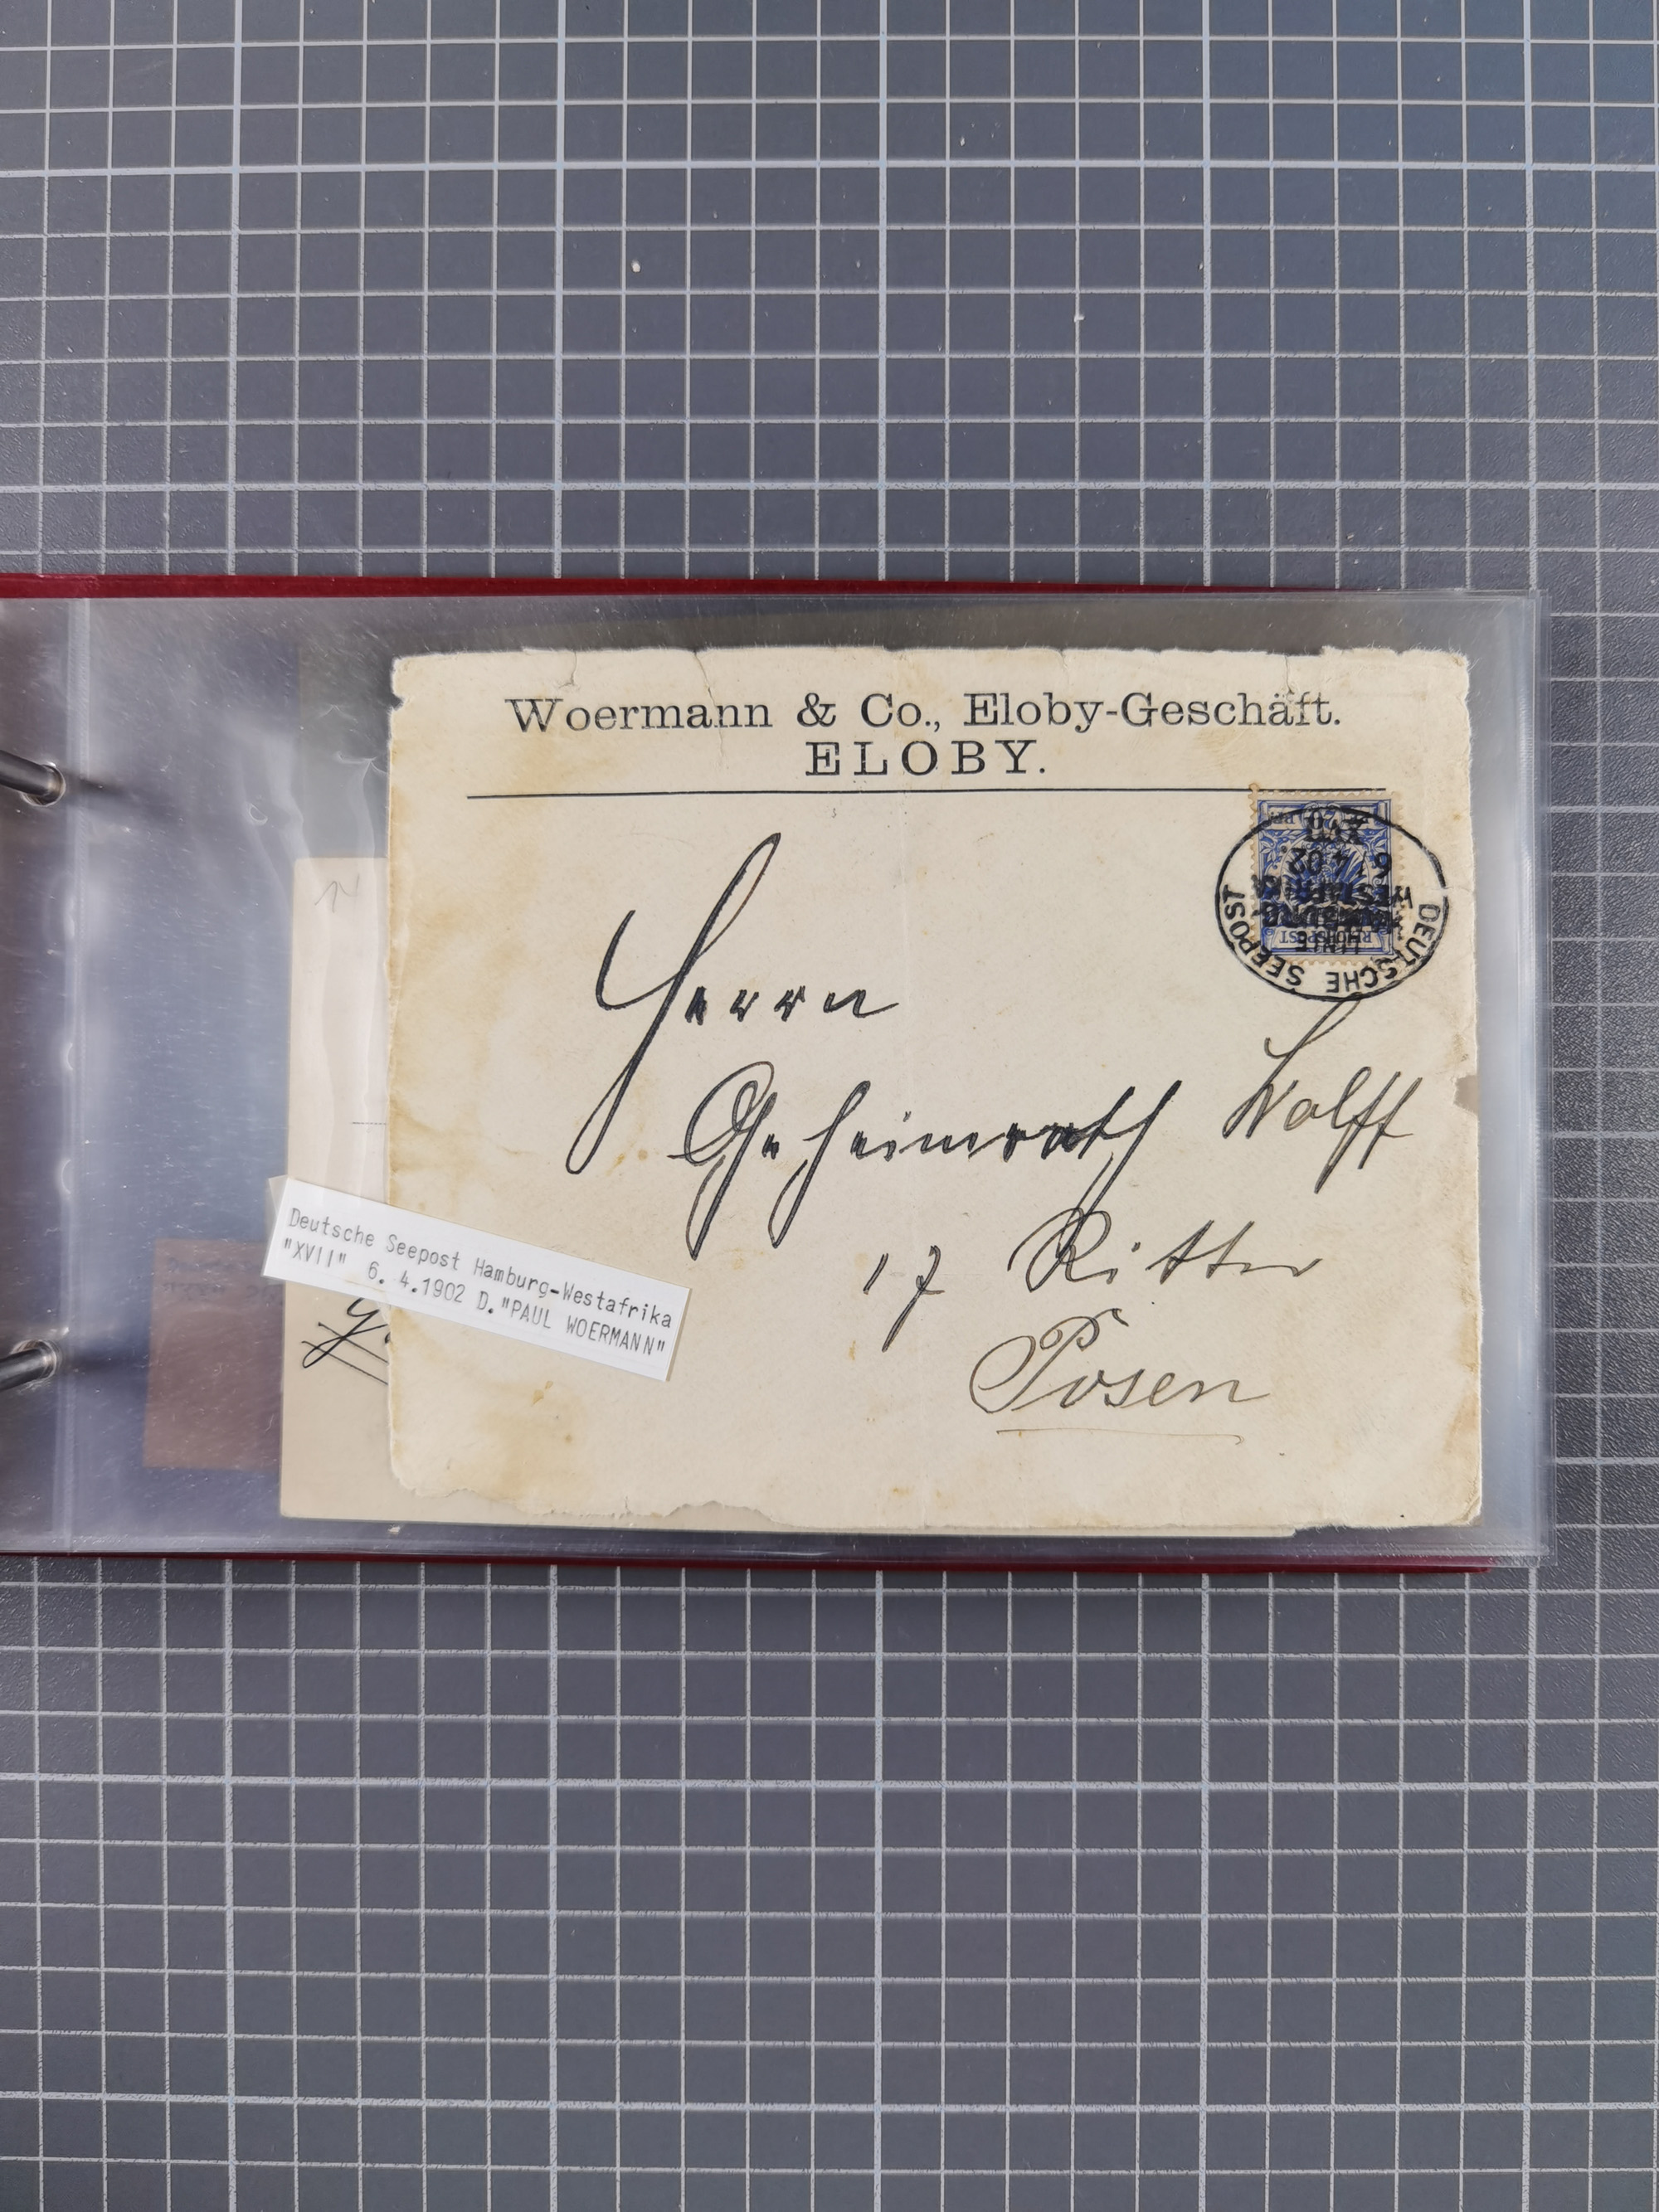 Woermann & Co., Eloby-Geschäft.
ELOBY.
20
XVII
6 / 4 02.
WESTAFRIKA
HAMBURG
LINIE
DEUTSCHE SEEPOST
REICHSPOST
Herrn
Geheimrath Wolff
17 Ritter
Posen
Deutsche Seepost Hamburg-Westafrika
"XVII" 6. 4.1902 D."PAUL WOERMANN"
14